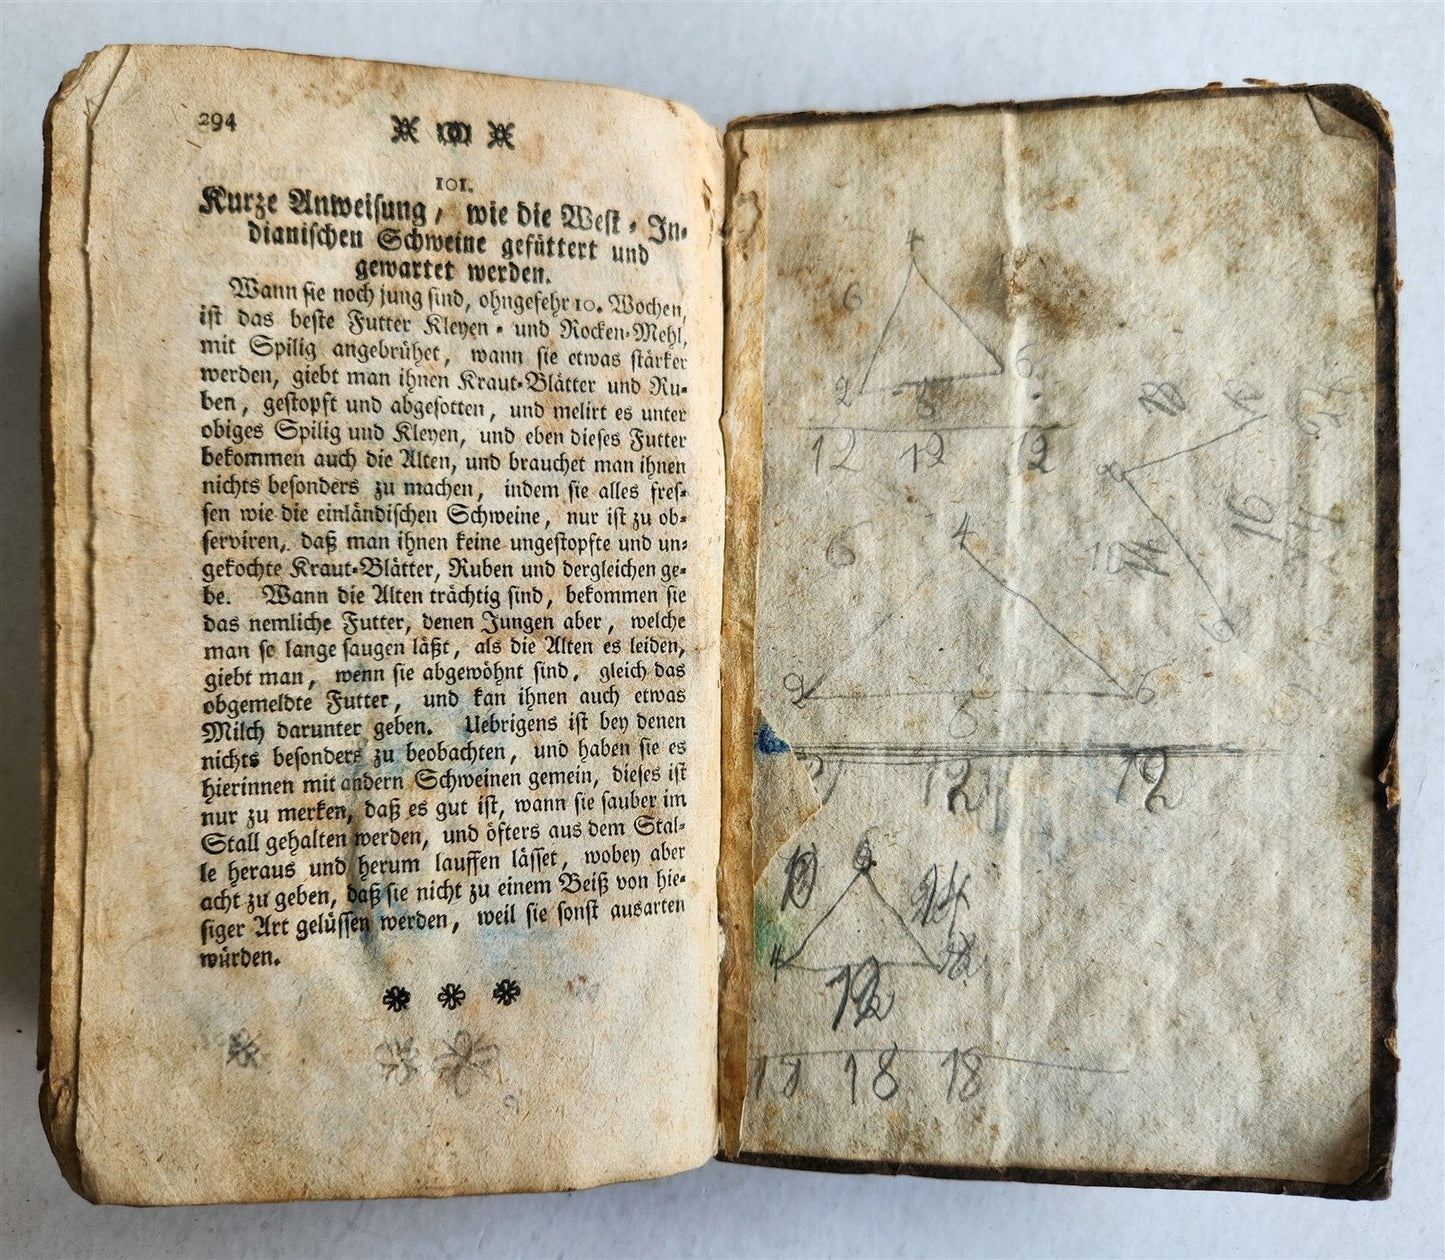 294
101.
Kurze Anweisung, wie die West-In-
dianischen Schweine gefüttert und
gewartet werden.
Wann sie noch jung sind, ohngefehr 10. Wochen,
ist das beste Futter Kleyen- und Rocken-Mehl,
mit Spilig angebrühet, wann sie etwas stärker
werden, giebt man ihnen Kraut-Blätter und Ru-
ben, gestopft und abgesotten, und melirt es unter
obiges Spilig und Kleyen, und eben dieses Futter
bekommen auch die Alten, und brauchet man ihnen
nichts besonders zu machen, indem sie alles fres-
sen wie die einländischen Schweine, nur ist zu ob-
serviren, daß man ihnen keine ungestopfte und un-
gekochte Kraut-Blätter, Ruben und dergleichen ge-
be. Wann die Alten trächtig sind, bekommen sie
das nemliche Futter, denen Jungen aber, welche
man so lange saugen läßt, als die Alten es leiden,
giebt man, wenn sie abgewöhnt sind, gleich das
obgemeldte Futter, und kan ihnen auch etwas
Milch darunter geben. Uebrigens ist bey denen
nichts besonders zu beobachten, und haben sie es
hierinnen mit andern Schweinen gemein, dieses ist
nur zu merken, daß es gut ist, wann sie sauber im
Stall gehalten werden, und öfters aus dem Stal-
le heraus und herum lauffen lässet, wobey aber
acht zu geben, daß sie nicht zu einem Beiß von hie-
siger Art gelüssen werden, weil sie sonst ausarten
würden.
4
6
2 6
12 12 12
16
6 4
2 5 6
12 12
24
4
12
18 18 18